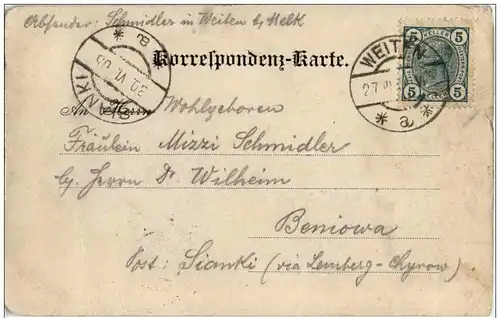 Absender: Schmidler in Weiten b/ Melk
Korrespondenz-Karte.
5 HELLER 5
5 5
WEITEN
27 VI
* a *
SIANKI
30 VI 05
* a *
An Herrn Wohlgeboren
Fräulein Mizzi Schmidler
b/ Herrn Dr Wilheim
Beniowa
Post: Sianki (via Lemberg-Chyrow)